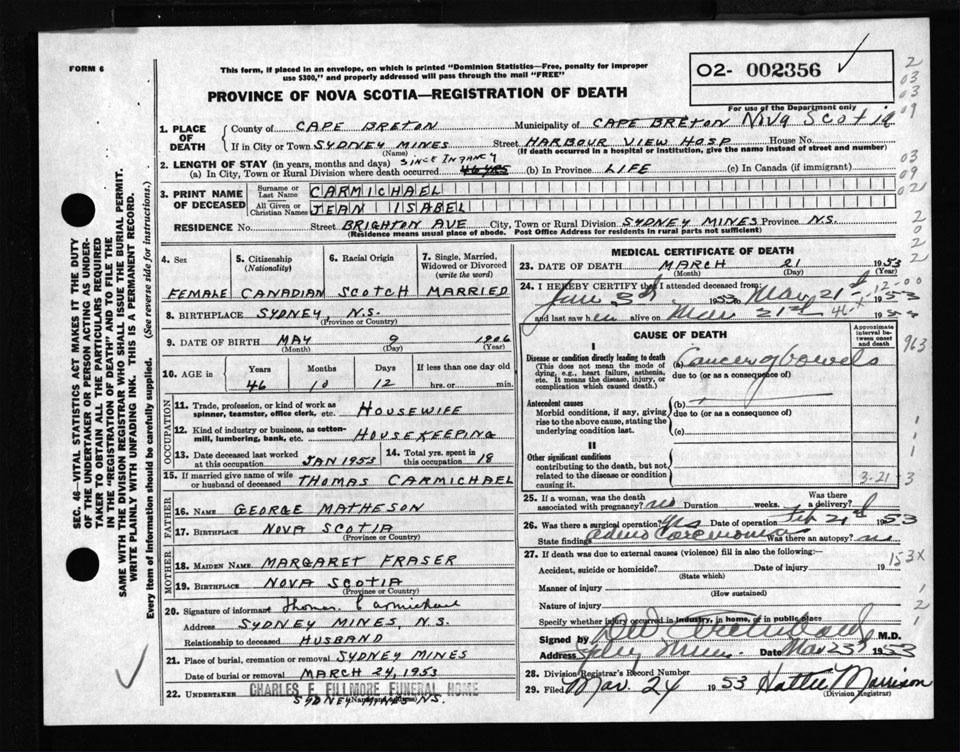 FORM 6
This form, if placed in an envelope, on which is printed "Dominion Statistics—Free, penalty for improper
use $300," and properly addressed will pass through the mail "FREE"
PROVINCE OF NOVA SCOTIA—REGISTRATION OF DEATH
02- 002356
For use of the Department only
SEC. 46—VITAL STATISTICS ACT MAKES IT THE DUTY
OF THE UNDERTAKER OR PERSON ACTING AS UNDER-
TAKER TO OBTAIN ALL THE PARTICULARS REQUIRED
IN THE "REGISTRATION OF DEATH" AND TO FILE THE
SAME WITH THE DIVISION REGISTRAR WHO SHALL ISSUE THE BURIAL PERMIT.
WRITE PLAINLY WITH UNFADING INK. THIS IS A PERMANENT RECORD.
Every item of information should be carefully supplied. (See reverse side for instructions.)
1. PLACE OF DEATH
County of CAPE BRETON Municipality of CAPE BRETON Nova Scotia
If in City or Town SYDNEY MINES Street HARBOUR VIEW HOSP House No.
(Name) (If death occurred in a hospital or institution, give the name instead of street and number)
2. LENGTH OF STAY (in years, months and days) SINCE INFANCY
(a) In City, Town or Rural Division where death occurred 46 YRS (b) In Province LIFE (c) In Canada (if immigrant)
3. PRINT NAME OF DECEASED
Surname or Last Name CARMICHAEL
All Given or Christian Names JEAN ISABEL
RESIDENCE No. Street BRIGHTON AVE City, Town or Rural Division SYDNEY MINES Province N.S.
(Residence means usual place of abode. Post Office Address for residents in rural parts not sufficient)
4. Sex FEMALE
5. Citizenship (Nationality) CANADIAN
6. Racial Origin SCOTCH
7. Single, Married, Widowed or Divorced (write the word) MARRIED
8. BIRTHPLACE SYDNEY, N.S.
(Province or Country)
9. DATE OF BIRTH MAY 9 1906
(Month) (Day) (Year)
10. AGE in Years Months Days If less than one day old
46 10 12 hrs. or min.
OCCUPATION
11. Trade, profession, or kind of work as spinner, teamster, office clerk, etc. HOUSEWIFE
12. Kind of industry or business, as cotton-mill, lumbering, bank, etc. HOUSEKEEPING
13. Date deceased last worked at this occupation JAN 1953
14. Total yrs. spent in this occupation 18
15. If married give name of wife or husband of deceased THOMAS CARMICHAEL
FATHER
16. NAME GEORGE MATHESON
17. BIRTHPLACE NOVA SCOTIA
(Province or Country)
MOTHER
18. MAIDEN NAME MARGARET FRASER
19. BIRTHPLACE NOVA SCOTIA
(Province or Country)
20. Signature of informant Thomas Carmichael
Address SYDNEY MINES, N.S.
Relationship to deceased HUSBAND
21. Place of burial, cremation or removal SYDNEY MINES
Date of burial or removal MARCH 24, 1953
22. UNDERTAKER CHARLES E. FILLMORE FUNERAL HOME
SYDNEY MINES N.S.
MEDICAL CERTIFICATE OF DEATH
23. DATE OF DEATH MARCH 21 1953
(Month) (Day) (Year)
24. I HEREBY CERTIFY that I attended deceased from:
Jan 3rd 1953 to Mar 21st 1953
and last saw her alive on Mar 21st 1953
CAUSE OF DEATH
Approximate interval between onset and death
I
Disease or condition directly leading to death
(This does not mean the mode of dying, e.g., heart failure, asthenia, etc. It means the disease, injury, or complication which caused death.)
(a) Cancer of bowels
due to (or as a consequence of)
Antecedent causes
Morbid conditions, if any, giving rise to the above cause, stating the underlying condition last.
(b)
due to (or as a consequence of)
(c)
II
Other significant conditions
contributing to the death, but not related to the disease or condition causing it.
3-21-3
25. If a woman, was the death associated with pregnancy? no Duration weeks. Was there a delivery?
26. Was there a surgical operation? yes Date of operation Feb 21st 1953
State findings adeno carcinoma Was there an autopsy? no
27. If death was due to external causes (violence) fill in also the following:—
Accident, suicide or homicide? Date of injury 19
(State which)
Manner of injury
(How sustained)
Nature of injury
Specify whether injury occurred in industry, in home, or in public place
Signed by M.D.
Address Sydney Mines Date Mar 23 1953
28. Division Registrar's Record Number
29. Filed Mar. 24 1953 Hattie Morrison
(Division Registrar)
963
153X